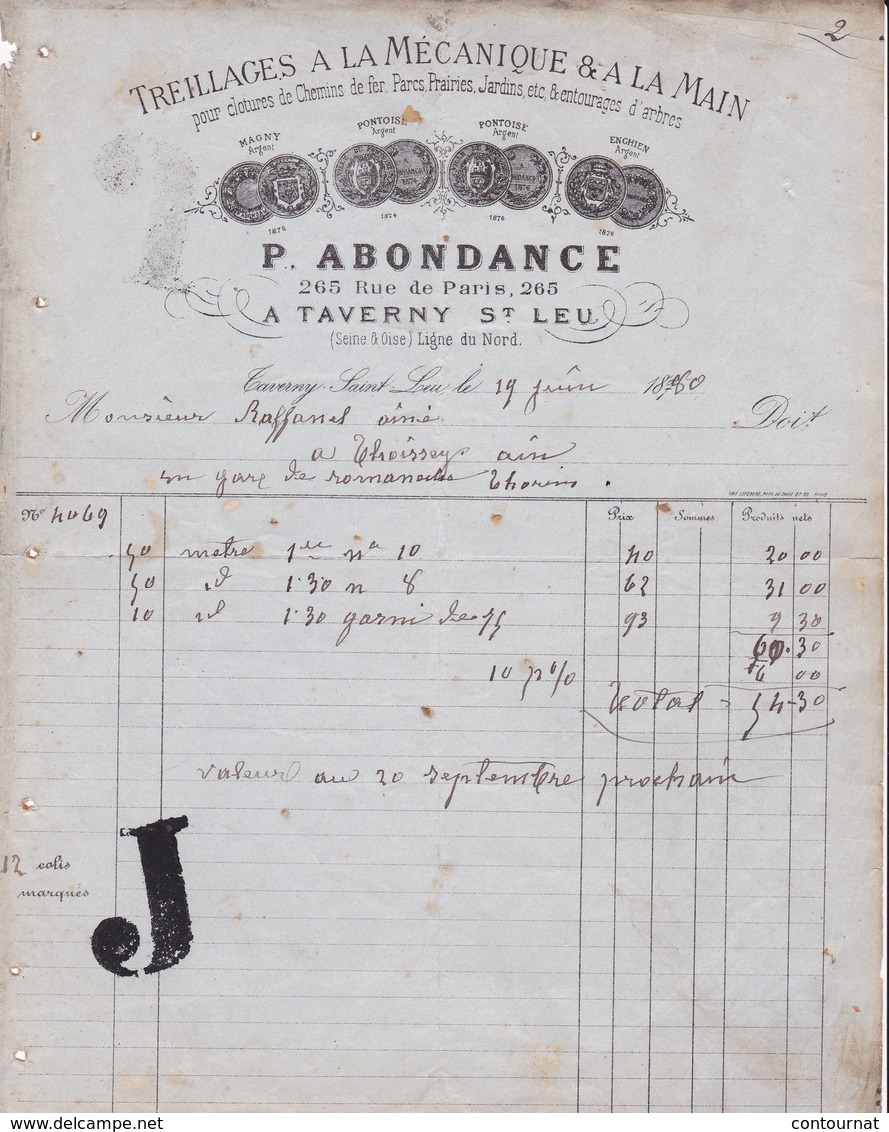 2
TREILLAGES A LA MÉCANIQUE & A LA MAIN
pour clotures de Chemins de fer, Parcs, Prairies, Jardins, etc, & entourages d'arbres
MAGNY Argent PONTOISE Argent PONTOISE Argent ENGHIEN Argent
1876 1874 1876 1876
P. ABONDANCE
265 Rue de Paris, 265
A TAVERNY ST LEU
(Seine & Oise) Ligne du Nord.
Taverny-Saint-Leu, le 19 juin 1880
Monsieur Raffanel ainé Doit
a Thoissey ain
en gare de romaneche Thorins.
No 4069 Prix Sommes Produits nets
50 metre 1 no 10 40 20 00
50 id 1.30 n 8 62 31 00
10 id 1.30 garni de 93 9 30
60.30
10 p% 6 00
Total = 54-30
valeur au 20 septembre prochain
12 colis
marqués
J
contournat